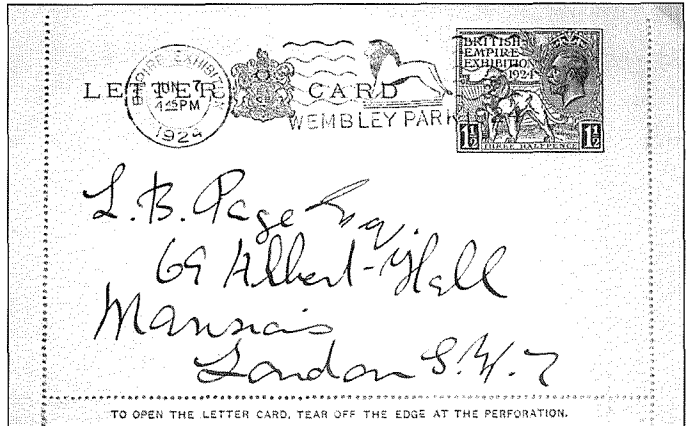 EMPIRE EXHIBITION
JUN 7
4.15PM
1924
LETTER CARD
WEMBLEY PARK 1924
BRITISH
EMPIRE
EXHIBITION
1924
1½ THREE HALFPENCE 1½
L. B. Page Esq.
69 Albert-Hall
Mansions
London S.W.7
TO OPEN THE LETTER CARD, TEAR OFF THE EDGE AT THE PERFORATION.